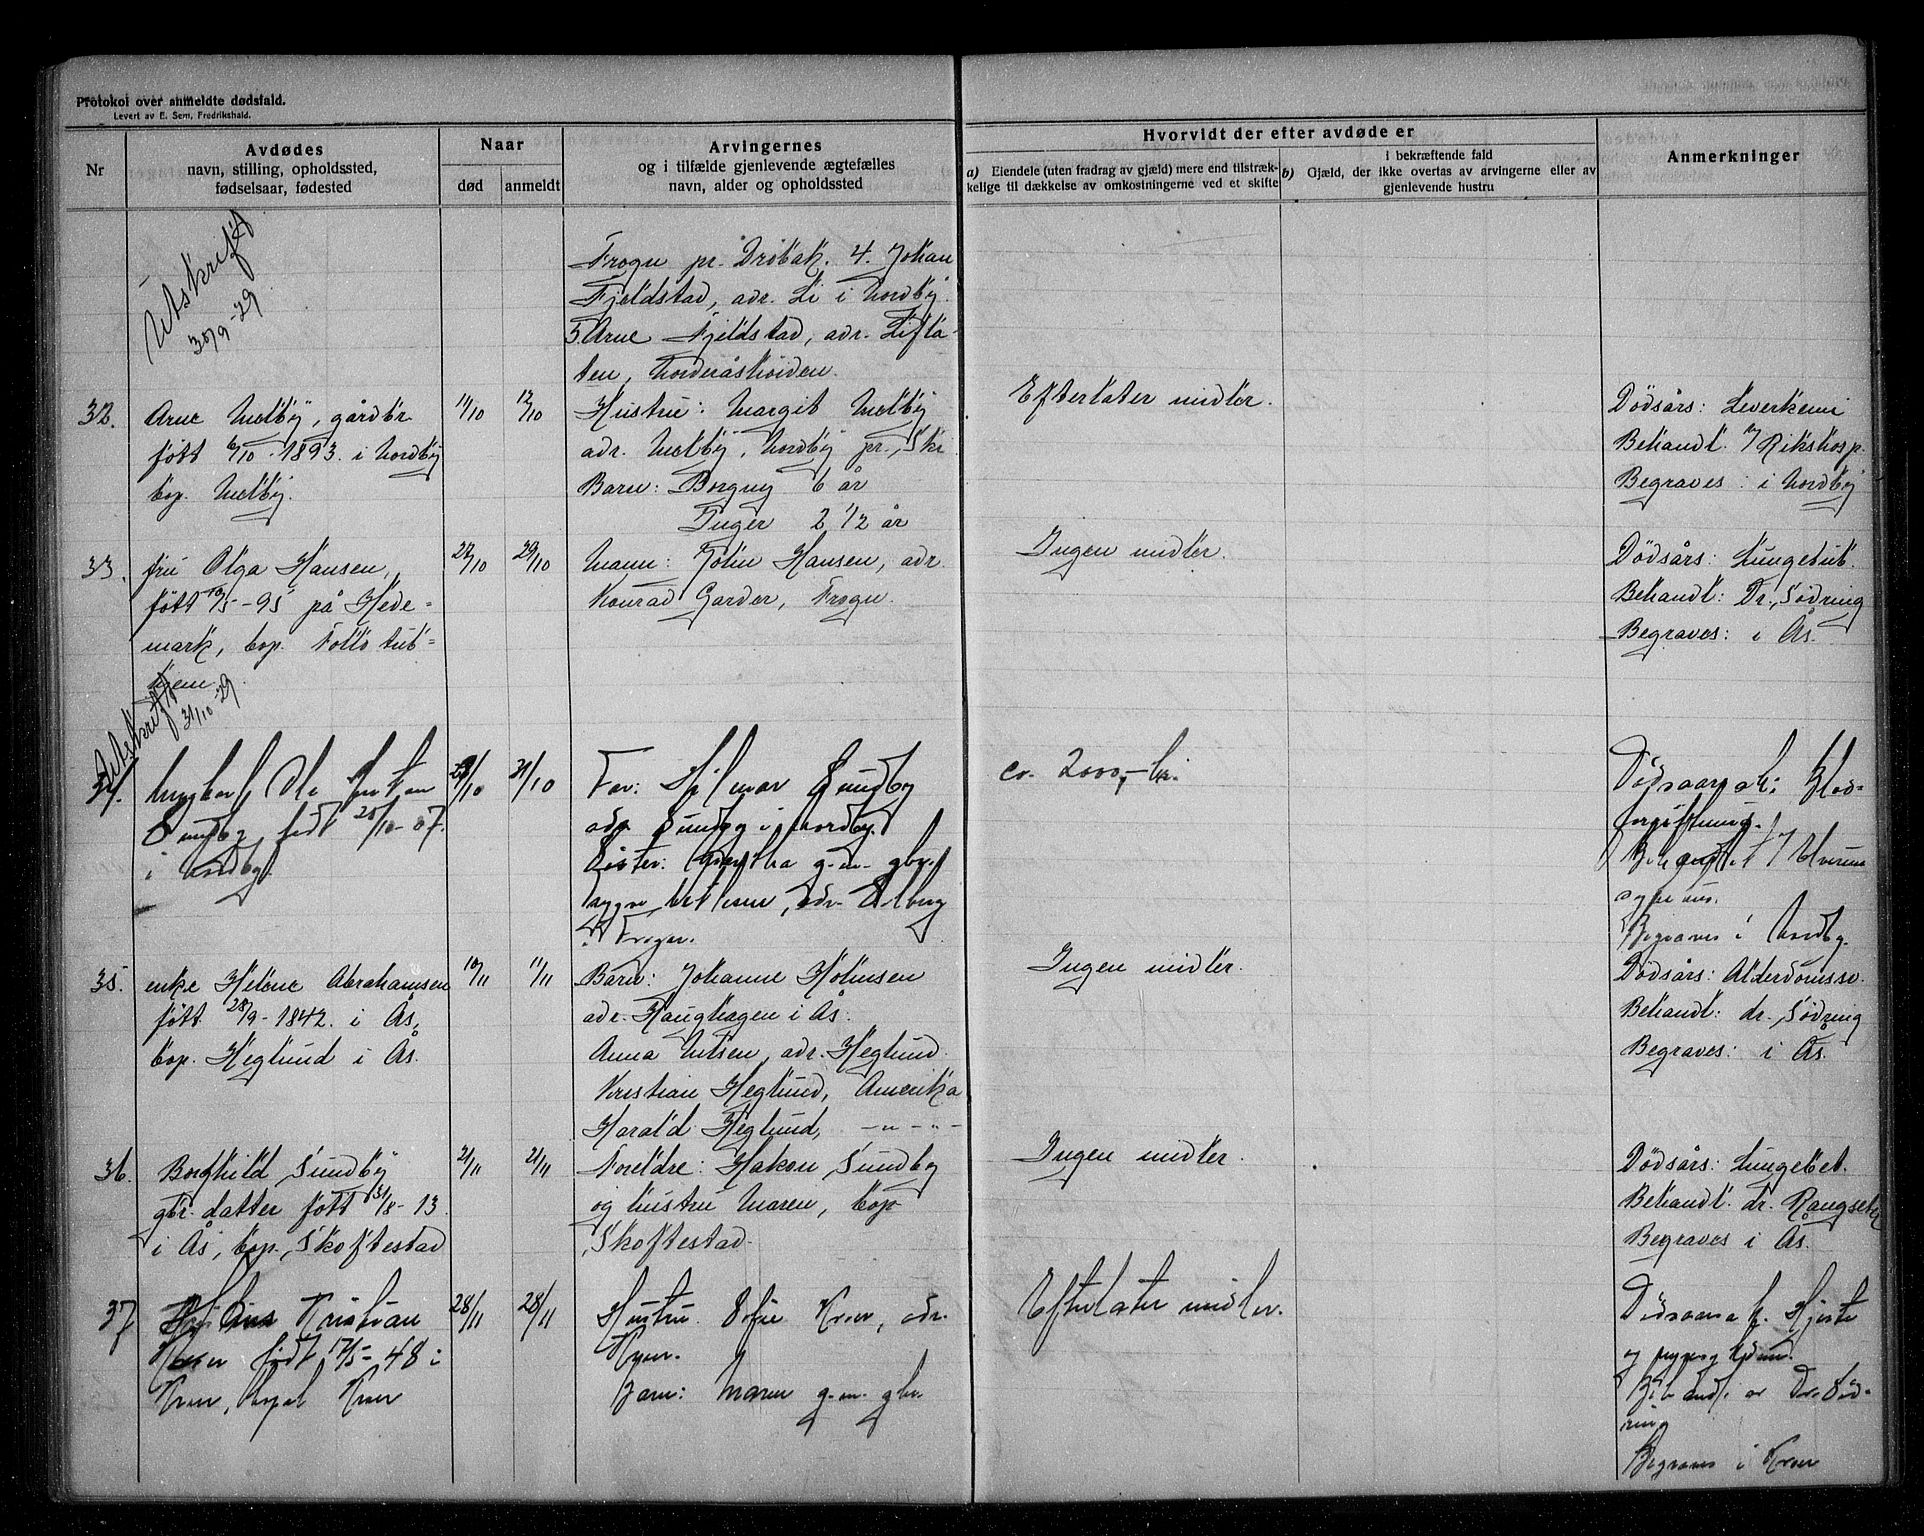 Protokol over anmeldte dødsfald.
Levert av E. Sem, Fredrikshald.
Nr
Avdødes
navn, stilling, opholdssted,
fødselsaar, fødested
Naar
død
anmeldt
Arvingernes
og i tilfælde gjenlevende ægtefælles
navn, alder og opholdssted
Hvorvidt der efter avdøde er
a) Eiendele (uten fradrag av gjæld) mere end tilstræk-
kelige til dækkelse av omkostningerne ved et skifte
i bekræftende fald
b) Gjæld, der ikke overtas av arvingerne eller av
gjenlevende hustru
Anmerkninger
Utskrift
30/9-29
Frogn pr. Dröbak. 4. Johan
Fjeldstad, adr. Li i Nordby.
5. Arne Fjeldstad, adr. Liflå-
ten, Nordråskoiden.
32.
Arne Melby, gårdbr.
född 6/10-1893. i Nordby
bop. Melby.
11/10
12/10
Hustru: Margit Melby
adr. Melby, Nordby pr. Ski
Barn: Borgny 6 år
Inger 2 1/2 år
Efterlater midler.
Dödsårs: Leverkemi
Behandl. Rikshosp.
Begraves: i Nordby
33.
fru Olga Hansen,
född 19/5-95 på Hede-
mark, bop. Follo tub-
hjem.
27/10
29/10
Mann: John Hansen, adr.
Konrad Garder, Frogn.
Ingen midler.
Dödsårs: Lungetub.
Behandl: Dr. Södring
Begraves: i Ås.
Utskrift
31/10-29
34.
Ungkarl Ole Johan
Sundby, födt 28/10-07.
i Nordby.
29/10
31/10
Far: Hjelmar Sundby
adr. Sundby i Nordby.
Söster: Martha g.m. gbr.
Trygve Nilsen, adr. Ellberg
i Frogn.
ca. 2000,- kr.
Dödsaarsak: Blod-
forgiftning.
Behandlet Ullevaal
sykehus.
Begraves i Nordby.
35.
enke Helene Abrahamsen
född 28/9-1842. i Ås,
bop. Heglund i Ås.
10/11
11/11
Barn: Johanne Holmsen
adr. Haughagen i Ås.
Anna Nilsen, adr. Heglund.
Kristian Heglund, Amerika
Harald Heglund, -"-"-
Ingen midler.
Dödsårs: Alderdomssv.
Behandl: dr. Södring
Begraves: i Ås.
36.
Borghild Sundby
gbr. datter född 31/8-13.
i Ås, bop. Skoftestad
21/11
21/11
Foreldre: Hakon Sundby
og hustru Maren, bop
Skoftestad.
Ingen midler.
Dödsårs: Lungebet.
Behandl. dr. Rangseth
Begraves i Ås.
37.
Kristian
Kroer födt 17/5-48 i
Kroer, bopæl Kroer
28/11
28/11
Hustru Sofie Kroer, adr.
Kroer.
Barn: Maren g.m. gbr.
Efterlater midler.
Dödsaarsak. Hjerte
og
Behandl. av Dr. Söd-
ring
Begraves i Kroer